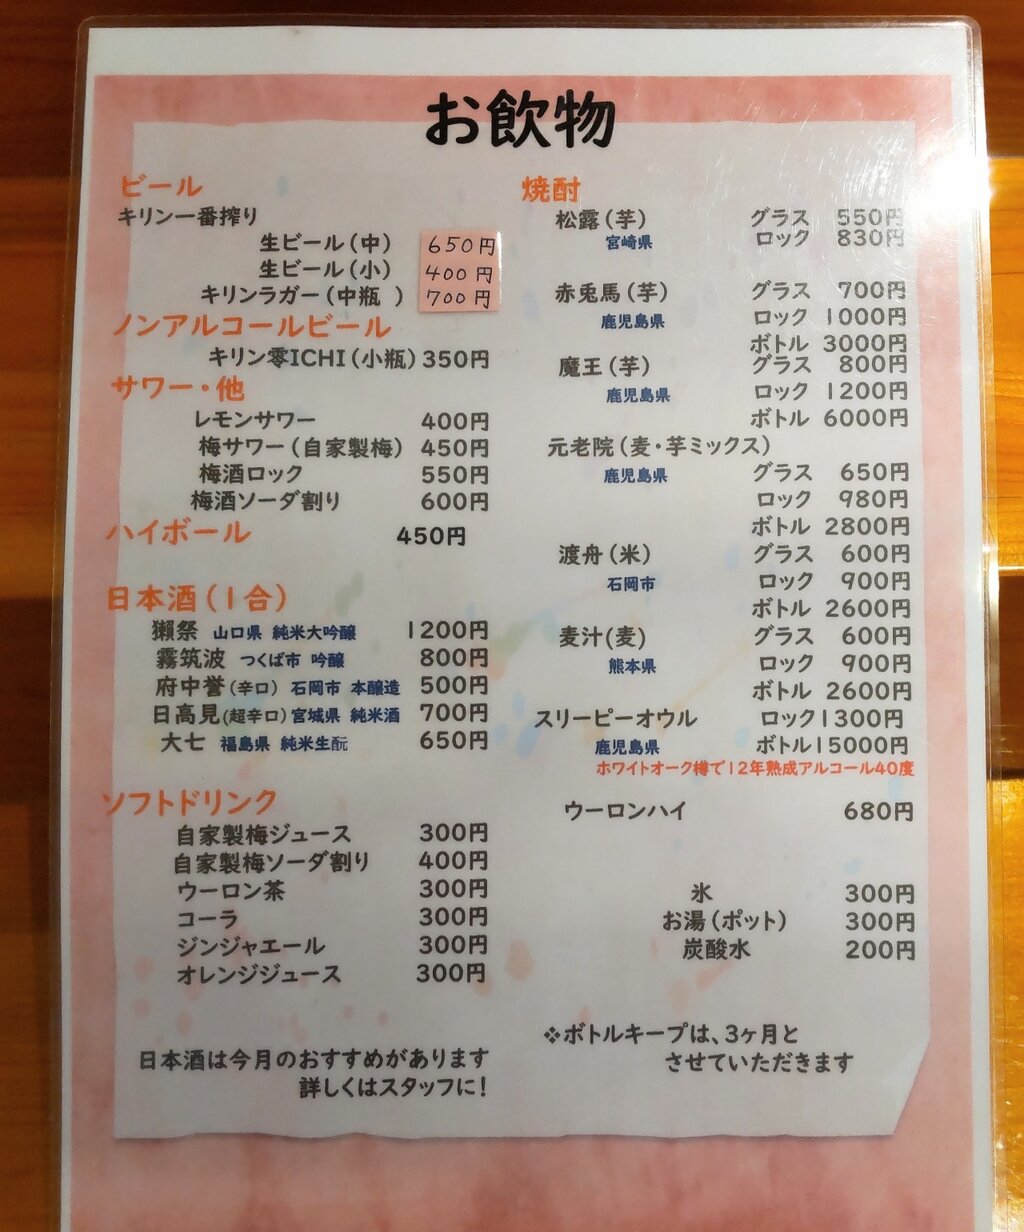 お飲物
ビール
キリン一番搾り
生ビール(中) 650円
生ビール(小) 400円
キリンラガー(中瓶 ) 700円
ノンアルコールビール
キリン零ICHI(小瓶) 350円
サワー・他
レモンサワー 400円
梅サワー(自家製梅) 450円
梅酒ロック 550円
梅酒ソーダ割り 600円
ハイボール 450円
日本酒(1合)
獺祭 山口県 純米大吟醸 1200円
霧筑波 つくば市 吟醸 800円
府中誉(辛口) 石岡市 本醸造 500円
日高見(超辛口)宮城県 純米酒 700円
大七 福島県 純米生酛 650円
ソフトドリンク
自家製梅ジュース 300円
自家製梅ソーダ割り 400円
ウーロン茶 300円
コーラ 300円
ジンジャエール 300円
オレンジジュース 300円
日本酒は今月のおすすめがあります
詳しくはスタッフに!
焼酎
松露(芋) グラス 550円
宮崎県 ロック 830円
赤兎馬(芋) グラス 700円
鹿児島県 ロック 1000円
ボトル 3000円
魔王(芋) グラス 800円
鹿児島県 ロック 1200円
ボトル 6000円
元老院(麦・芋ミックス)
鹿児島県 グラス 650円
ロック 980円
ボトル 2800円
渡舟(米) グラス 600円
石岡市 ロック 900円
ボトル 2600円
麦汁(麦) グラス 600円
熊本県 ロック 900円
ボトル 2600円
スリーピーオウル ロック1300円
鹿児島県 ボトル15000円
ホワイトオーク樽で12年熟成アルコール40度
ウーロンハイ 680円
氷 300円
お湯(ポット) 300円
炭酸水 200円
❖ボトルキープは、3ヶ月と
させていただきます